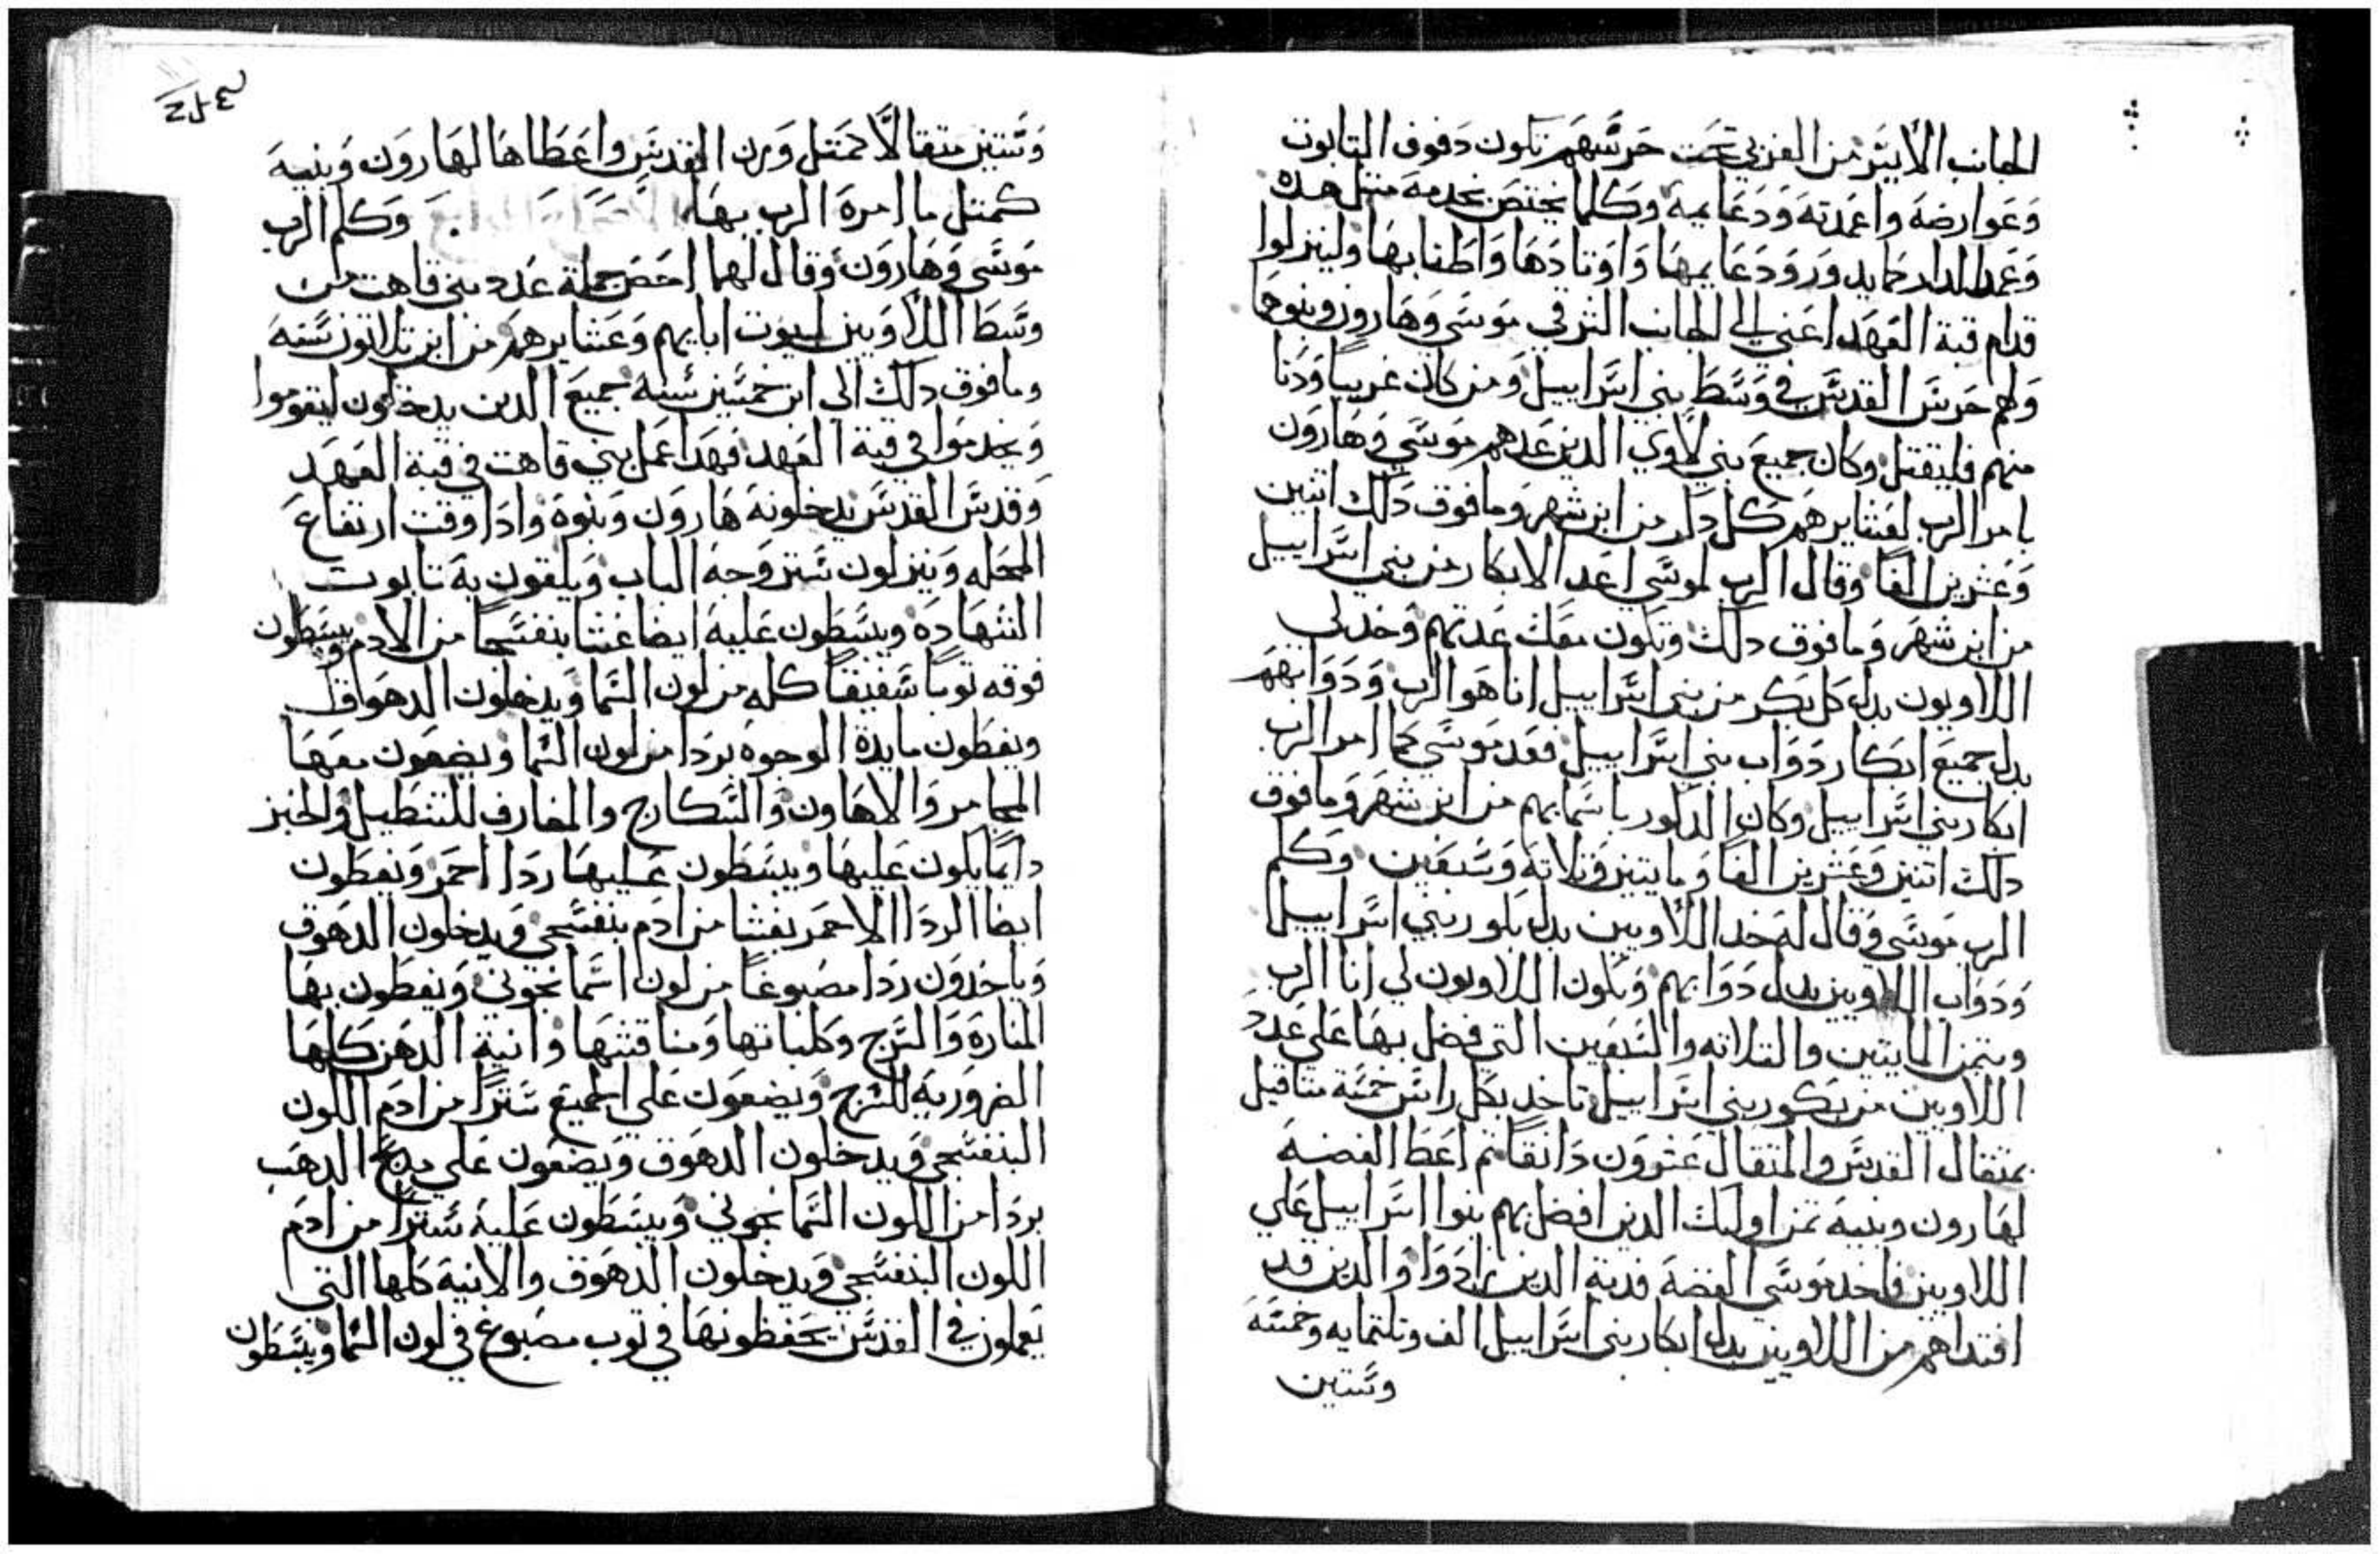 الجانب الايسر من الغربي تحت حرسهم تكون دفوف التابوت
وعوارضه واعمدته ودعايمه وكلما يختص بخدمه متل هده
وعمد الدار ودعايمها واوتادها واطنابها ولينزلوا
قدام قبة العهد اعني الي الجانب الشرقي موسي وهارون وبنوهما
ولهم حرس القدس في وسط بني اسراييل ومن كان غريبا ودنا
منهم فليقتل وكان جميع بني لاوي الدين عدهم موسي وهارون
بامر الرب لعشايرهم كل دكر من ابن شهر وما فوق دلك اتنين
وعشرين الفا وقال الرب لموسي اعد الابكار من بني اسراييل
من ابن شهر وما فوق دلك وتكون معك عدتهم وخد لي
اللاويون بدل كل بكر من بني اسراييل انا هو الرب ودوابهم
بدل جميع ابكار دواب بني اسراييل فعد موسي كما امر الرب
ابكار بني اسراييل وكان الدكور باسمايهم من ابن شهر وما فوق
دلك اتنين وعشرين الفا ومايتين وتلاته وسبعين وكلم
الرب موسي وقال له خد اللاويين بدل بكور بني اسراييل
ودواب اللاويين بدل دوابهم ويكون اللاويون لي انا الرب
وبتمن المايتين والتلاته والسبعين التي فضل بها علي عدد
اللاويين من بكور بني اسراييل تاخد بكل راس خمسة متاقيل
بمتقال القدس والمتقال عشرون دانقا تم اعط الفضة
لهارون وبنيه تمن اوليك الدين افضل بهم بنوا اسراييل علي
اللاويين فاخد موسي الفضة فدية الدين زادوا والدين قد
افتداهم من اللاويين بدل ابكار بني اسراييل الف وتلتمايه وخمسه
وستين
وستين متقالا كمتل وزن القدس واعطاها لهارون وبنيه
كمتل ما امره الرب بها وكلم الرب
موسي وهارون وقال لهما احص جملة عدد بني قاهت من
وسط اللاويين لبيوت ابايهم وعشايرهم من ابن تلاتون سنه
وما فوق دلك الي ابن خمسين سنه جميع الدين يدخلون ليقوموا
ويخدموا في قبة العهد فهدا عمل بني قاهت في قبة العهد
وقدس القدس يدخلونه هارون وبنوه وادا وقت ارتفاع
المحله وينزلون ستر وجه الباب ويلقون به تابوت
الشهاده ويبسطون عليه ايضا غشا بنفسجا من الادم ويبسطون
فوقه توبا شفيفا كله من لون السما ويدخلون الدهوق
ويغطون مايدة الوجوه بردا من لون السما ويضعون معها
المجامر والاهاون والسكارج والمغارف للتنطيل والخبز
دايما يكون عليها ويبسطون عليها ردا احمر ويغطون
ايضا الردا الاحمر بغشا من ادم بنفسجي ويدخلون الدهوق
وياخدون ردا مصبوغا من لون اسمانجوني ويغطون بها
المناره والسرج وكلباتها ومناقشها وانية الدهن كلها
الضروريه للسرج ويضعون علي الجميع سترا من ادم اللون
البنفسجي ويدخلون الدهوق ويضعون علي مدبح الدهب
بردا من اللون السمانجوني ويبسطون عليه سترا من ادم
اللون البنفسجي ويدخلون الدهوق والانيه كلها التي
يعملون في القدس يحفظونها في توب مصبوغ في لون السما ويبسطون